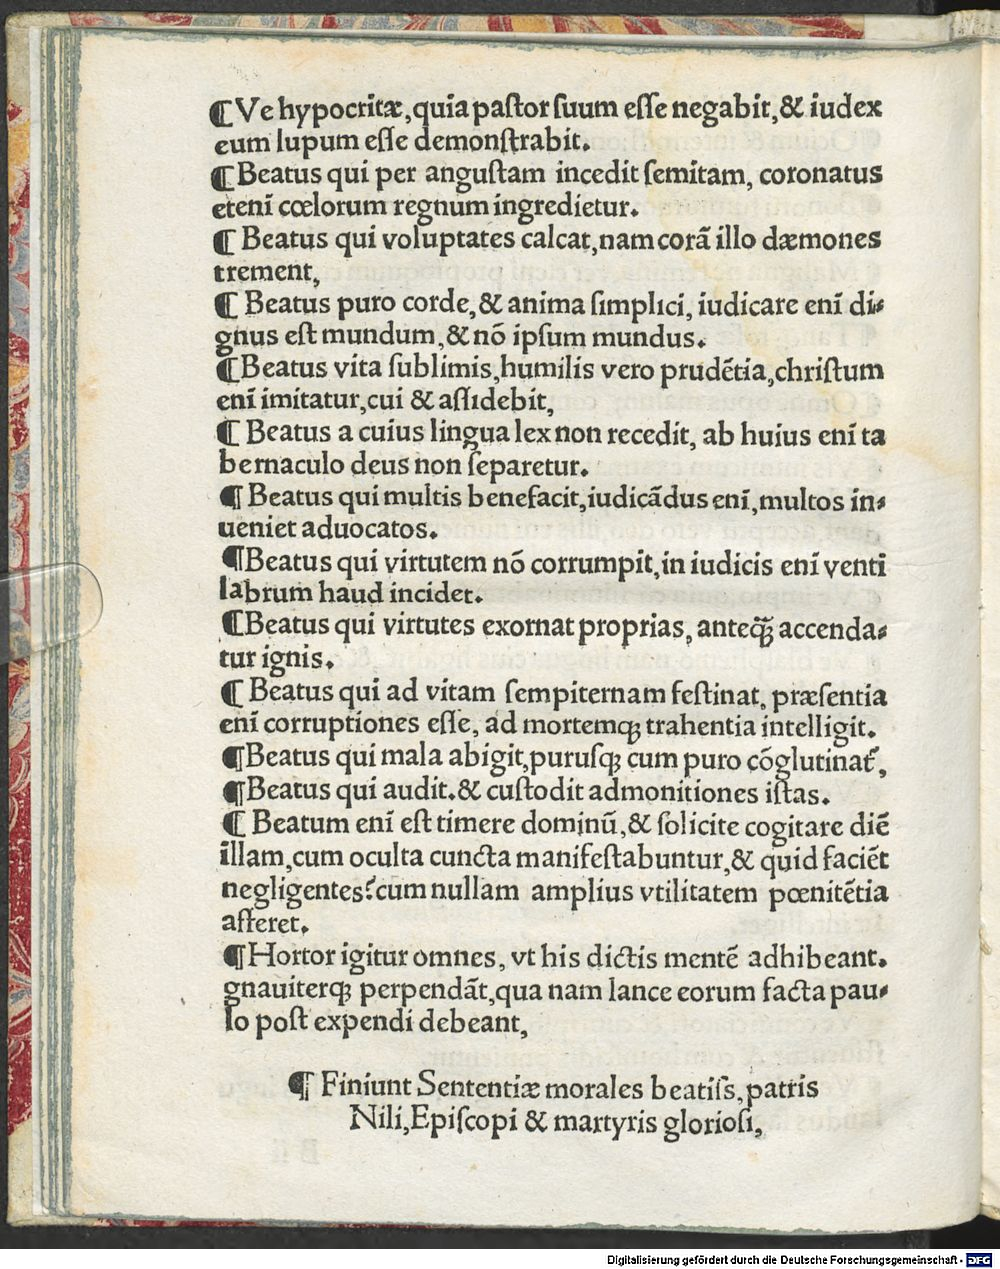 ¶ Ve hypocritæ, quia pastor suum esse negabit, & iudex
eum lupum esse demonstrabit.
¶ Beatus qui per angustam incedit semitam, coronatus
etenī cœlorum regnum ingredietur.
¶ Beatus qui voluptates calcat, nam corā illo dæmones
trement,
¶ Beatus puro corde, & anima simplici, iudicare enī di⸗
gnus est mundum, & nō ipsum mundus.
¶ Beatus vita sublimis, humilis vero prudētia, christum
enī imitatur, cui & assidebit,
¶ Beatus a cuius lingua lex non recedit, ab huius enī ta
bernaculo deus non separetur.
¶ Beatus qui multis benefacit, iudicādus enī, multos in⸗
ueniet aduocatos.
¶ Beatus qui virtutem nō corrumpit, in iudicis enī venti
labrum haud incidet.
¶ Beatus qui virtutes exornat proprias, anteq̄ꝫ accenda⸗
tur ignis.
¶ Beatus qui ad vitam sempiternam festinat, præsentia
enī corruptiones esse, ad mortemqꝫ trahentia intelligit.
¶ Beatus qui mala abigit, purusqꝫ cum puro cōglutinat᷑,
¶ Beatus qui audit. & custodit admonitiones istas.
¶ Beatum enī est timere dominū, & solicite cogitare diē
illam, cum oculta cuncta manifestabuntur, & quid faciēt
negligentes? cum nullam amplius vtilitatem pœnitētia
afferet.
¶ Hortor igitur omnes, vt his dictis mentē adhibeant.
gnauiterqꝫ perpendāt, qua nam lance eorum facta pau⸗
lo post expendi debeant,
¶ Finiunt Sententiæ morales beatiss, patris
Nili, Episcopi & martyris gloriosi,
Digitalisierung gefördert durch die Deutsche Forschungsgemeinschaft - DFG